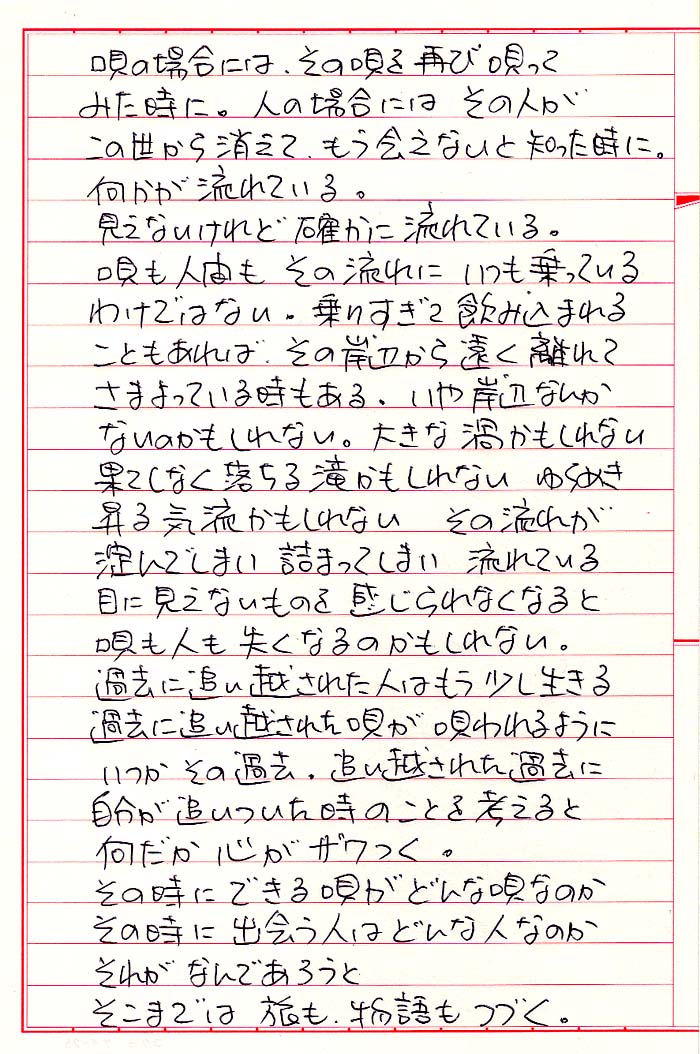 唄の場合には、その唄を再び唄って
みた時に。人の場合には その人が
この世から消えて、もう会えないと知った時に。
何かが流れている。
見えないけれど確かに流れている。
唄も人間も その流れに いつも乗っている
わけではない。乗りすぎて飲み込まれる
こともあれば、その岸辺から遠く離れて
さまよっている時もある、いや岸辺なんか
ないのかもしれない。大きな渦かもしれない
果てしなく落ちる滝かもしれない ゆらめき
昇る気流かもしれない その流れが
澱んでしまい 詰まってしまい 流れている
目に見えないものを感じられなくなると
唄も人も失くなるのかもしれない。
過去に追い越された人はもう少し生きる
過去に追い越された唄が唄われるように
いつか その過去、追い越された過去に
自分が追いついた時のことを考えると
何だか心がザワつく。
その時にできる唄がどんな唄なのか
その時に出会う人はどんな人なのか
それがなんであろうと
そこまでは 旅も、物語もつづく。